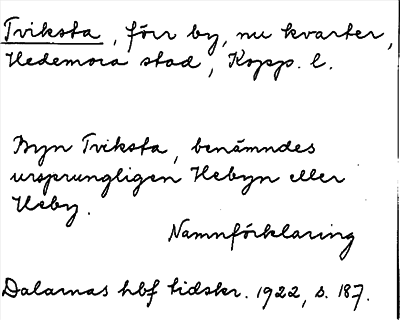 Tviksta, förr by, nu kvarter,
Hedemora stad, Kopp. l.
Byn Tviksta, benämndes
ursprungligen Hebyn eller
Heby.
Namnförklaring
Dalarnas hbf tidskr. 1922, s. 187.